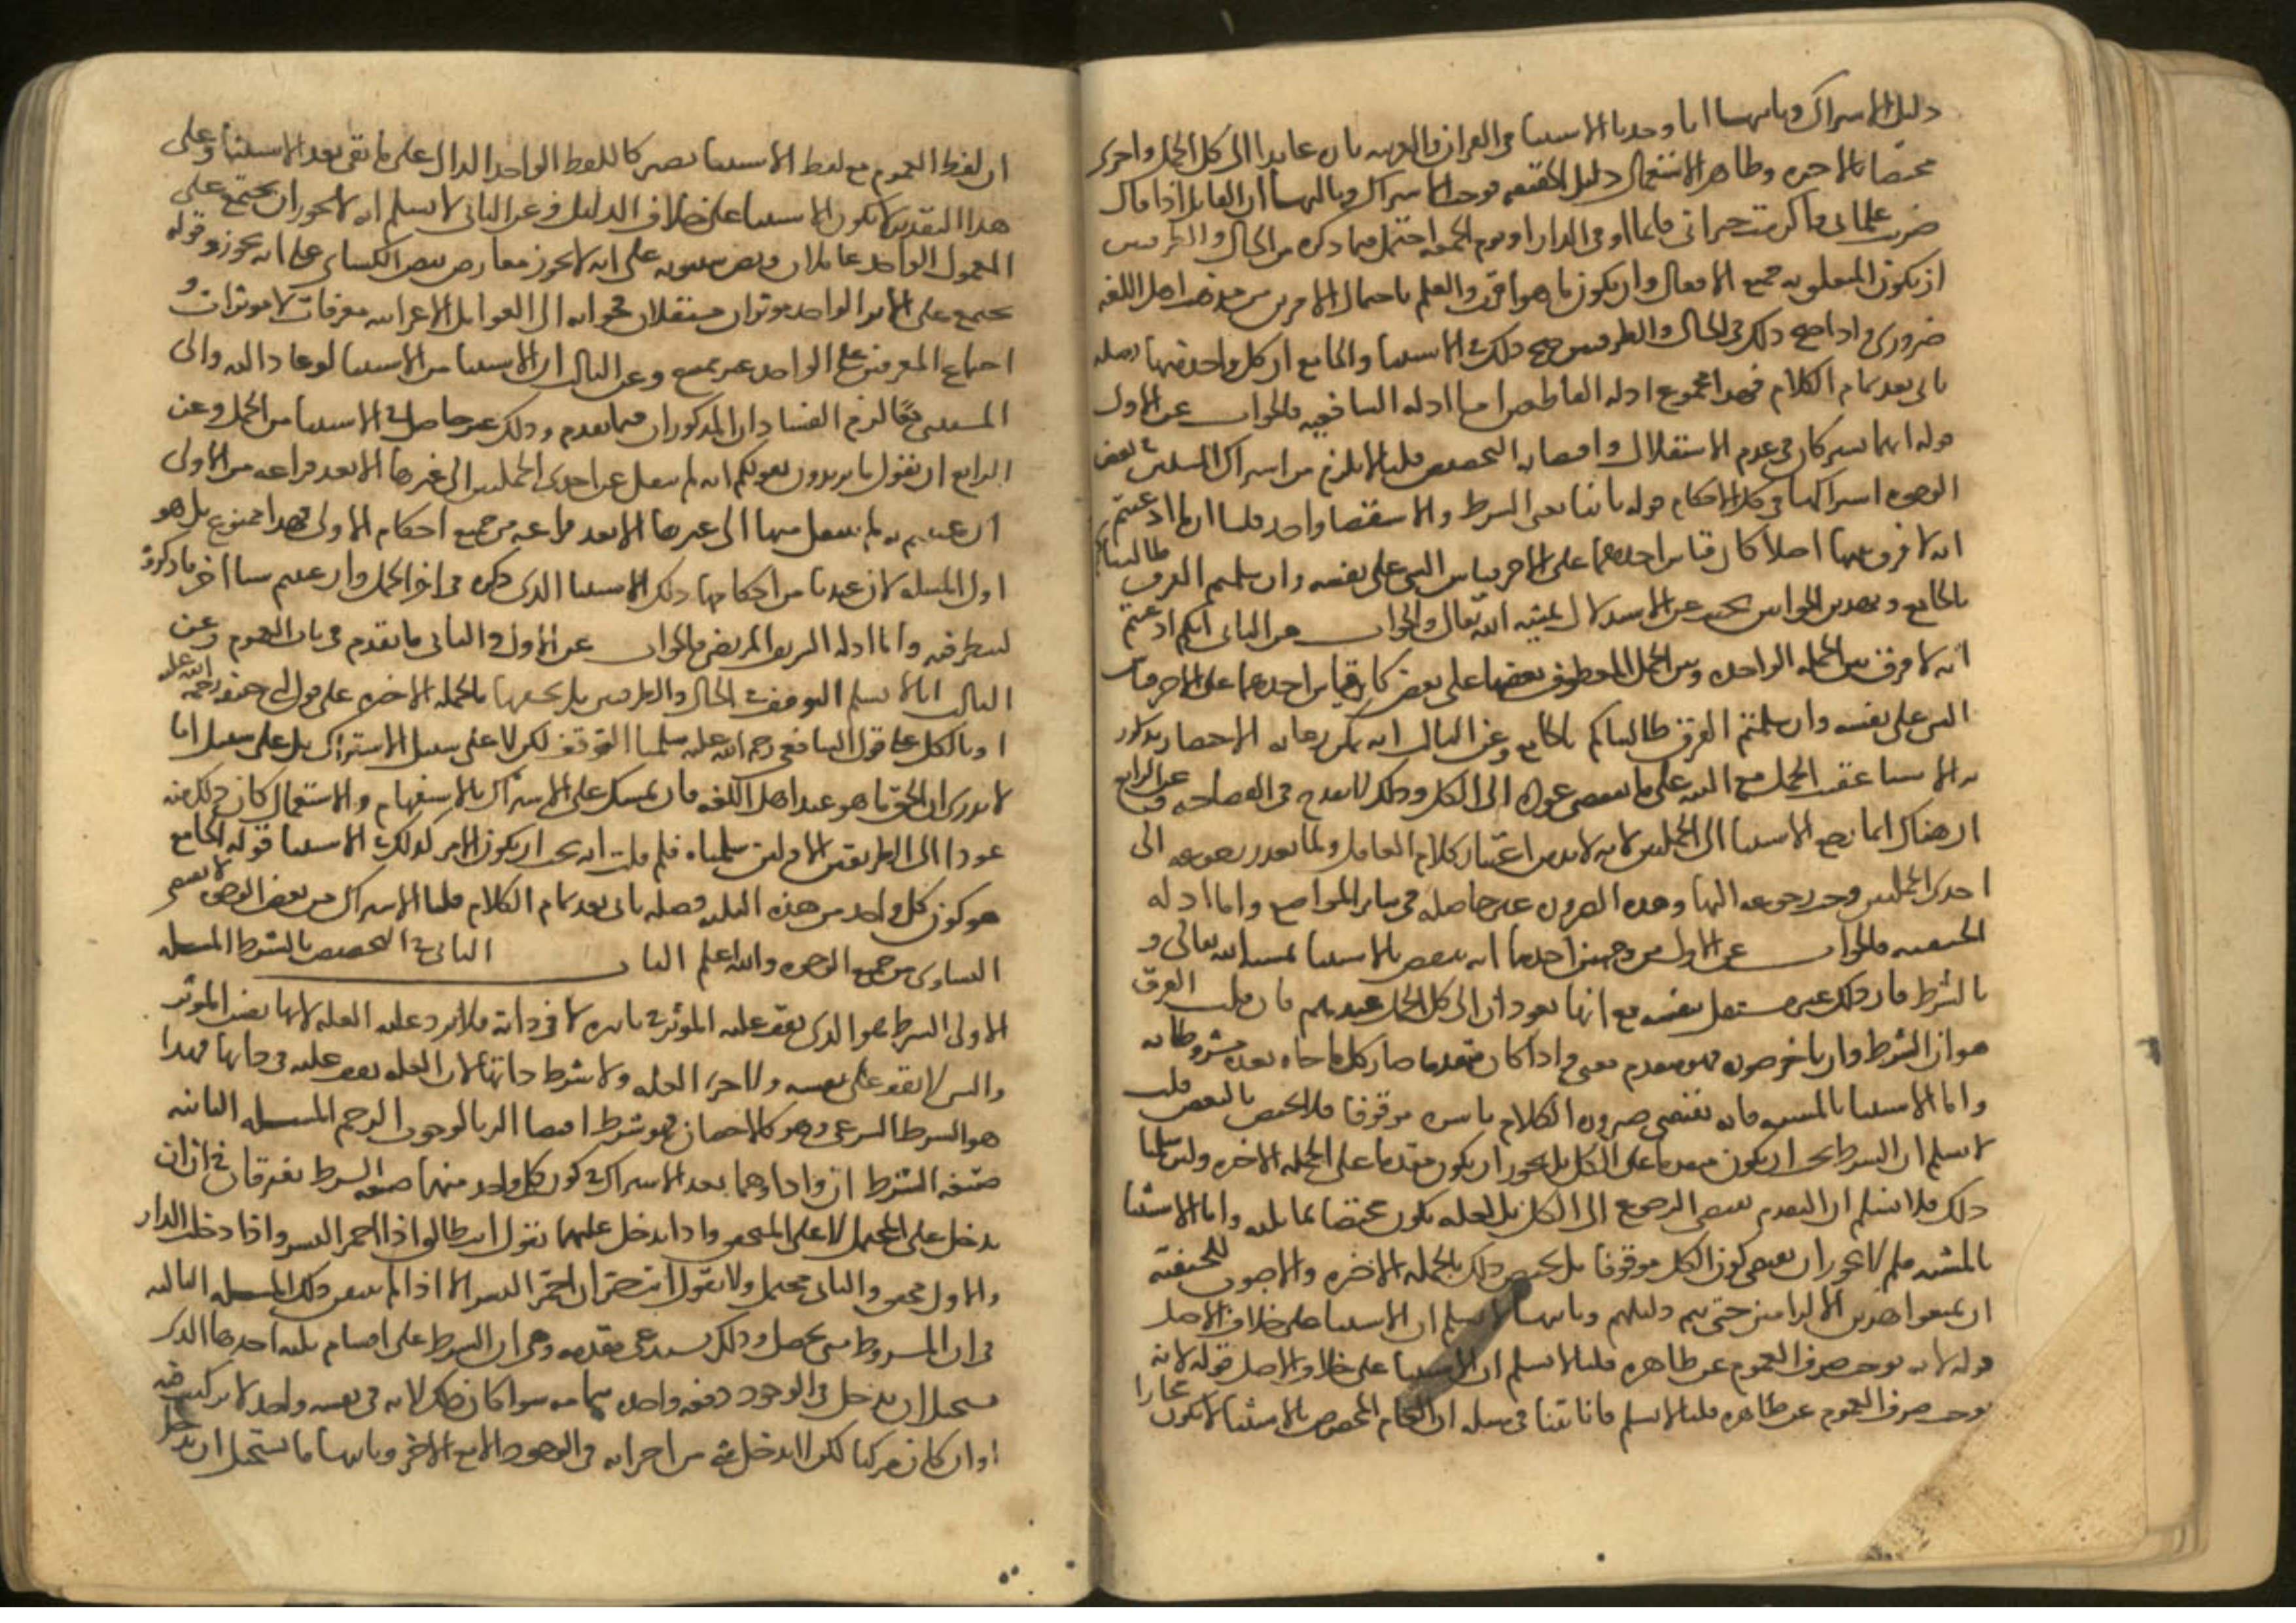 دليل الاشتراك وثانيها انا وجدنا الاستثناء في القران والعربية تارة عايدا الى كل الجمل واخرى
مختصا بالاخيرة وظاهر الاستعمال دليل الحقيقة فوجب الاشتراك وثالثها ان القايل اذا قال
ضربت غلماني واكرمت جيراني قايما او في الدار او يوم الجمعة احتمل فيما ذكره من الحال والظرفين
ان يكون المتعلق به جميع الافعال وان يكون ما هو اقرب والعلم باحتمال الامرين من مذهب اهل اللغة
ضروري واذا صح ذلك في الحال والظرفين صح ذلك في الاستثناء والجامع ان كل واحد منها فضلة
تاتي بعد تمام الكلام فهذا مجموع ادلة القاطعين اما ادلة الشافعية فالجواب عن الاول
قوله انهما يشتركان في عدم الاستقلال واقتضاء التخصيص قلنا لا يلزم من اشتراك الشيئين في بعض
الوجوه اشتراكهما في كل الاحكام قوله ثانيا معنى الشرط والاستثناء واحد قلنا ان ادعيتم
انه لا فرق بينهما اصلا كان قياس احدهما على الاخر قياس الشي على نفسه وان سلمتم الفرق طالبناكم
بالجامع وبهذين الجوابين نجيب عن الاستدلال بمشية الله تعالى والجواب عن الثاني انكم ادعيتم
انه لا فرق بين الجملة الواحدة وبين الجمل المعطوف بعضها على بعض كان قياس احدهما على الاخر قياس
الشي على نفسه وان سلمتم الفرق طالبناكم بالجامع وعن الثالث انه يمكن رعاية الاختصار بذكر
الاستثناء عقيب الجمل مع التنبيه على ما يقتضي عوده الى الكل وذلك لا يقدح في الفصاحة وعن الرابع
ان هناك انما رجع الاستثناء الى الجملتين لانه لا بد من اعتبار كلام العاقل ولما تعذر رجوعه الى
احدى الجملتين وجب رجوعه اليهما وهذه الضرورة غير حاصلة في ساير المواضع واما ادلة
الحنفية فالجواب عن الاول من وجهين احدهما انه ينتقض بالاستثناء بمشية الله تعالى و
بالشرط فان ذلك غير مستقل بنفسه مع انهما يعودان الى كل الجمل عندهم فان قلت الفرق
هو ان الشرط وان تاخر صورة فهو متقدم معنى واذا كان متقدما صار كل ما جاء بعده مشروطا به
واما الاستثناء بالمشية فانه يقتضي صيرورة الكلام باسره موقوفا فلا يختص بالبعض قلت
لا نسلم ان الشرط يجب ان يكون متقدما على الكل بل يجوز ان يكون متقدما على الجملة الاخيرة ولئن سلمنا
ذلك فلا نسلم ان التقدم يقتضي الرجوع الى الكل بل لعله يكون مختصا بما يليه واما الاستثناء
بالمشية فلم لا يجوز ان يقتضي كون الكل موقوفا بل يختص ذلك بالجملة الاخيرة والاصوب للحنفية
ان يمنعوا هذين الالزامين حتى يتم دليلهم وثانيها لا نسلم ان الاستثناء على خلاف الاصل
قوله لانه يوجب صرف العموم عن ظاهره قلنا لا نسلم ان الاستثناء على خلاف الاصل قوله لانه
يوجب صرف العموم عن ظاهره قلنا لا نسلم فانا بينا في مسلة ان العام المخصوص بالاستثناء لا يكون مجازا
ان لفظ العموم مع لفظ الاستثناء يصير كاللفظ الواحد الدال على ما بقي بعد الاستثناء وعلى
هذا التقدير لا يكون الاستثناء على خلاف الدليل وعن الثاني لا نسلم انه لا يجوز ان يجتمع على
المعمول الواحد عاملان ونص سيبويه على انه لا يجوز معارض بنص الكسائي على انه يجوز وقوله
يجتمع على الاثر الواحد موثران مستقلان جوابه ان العوامل الاعرابية معرفات لا موثرات و
اجتماع المعرفين على الواحد غير ممتنع وعن الثالث ان الاستثناء من الاستثناء لو عاد اليه والى
المستثنى معا لزم الفسادان المذكوران فيما تقدم وذلك غير حاصل في الاستثناء من الجمل وعن
الرابع ان نقول ما تريدون بقولكم انه لم ينتقل عن احدى الجملتين الى غيرها الا بعد فراغه من الاولى
ان عنيتم به لم ينتقل منها الى غيرها الا بعد فراغه من جميع احكام الاولى فهذا ممنوع بل هو
اول المسلة لان عندنا من احكامها ذلك الاستثناء الذي ذكره في اخر الجمل وان عنيتم شيا اخر فاذكروه
لننظر فيه واما ادلة الشريف المرتضى فالجواب عن الاول والثاني ما تقدم في باب العموم وعن
الثالث انا لا نسلم التوقف في الحال والظرفين بل نخصها بالجملة الاخيرة على قول ابي حنيفة رحمة الله عليه
او بالكل على قول الشافعي رحمة الله عليه سلمنا التوقف لكن لا على سبيل الاشتراك بل على سبيل انا
لا ندري ان الحق ما هو عند اهل اللغة فان تمسك على الاشتراك بالاستفهام والاستعمال كان ذلك منه
عودا الى الطريقين الاولين سلمناه فلم قلت انه يجب ان يكون الامر كذلك في الاستثناء قوله الجامع
هو كون كل واحد من هذه الثلثة فضلة تاتي بعد تمام الكلام قلنا الاشتراك من بعض الوجوه لا يقتضي
التساوي من جميع الوجوه والله اعلم الباب الثاني في التخصيص بالشرط المسلة
الاولى الشرط هو الذي يقف عليه الموثر في تاثيره لا في ذاته فلا ترد عليه العلة لانها نفس الموثر
والشي لا يقف على نفسه ولا جزء العلة ولا شرط ذاتها لان العلة تقف عليه في ذاتها فهذا
هو الشرط الشرعي وهو كالاحصان فهو شرط اقتضاء الزنا لوجوب الرجم المسلة الثانية
صيغة الشرط ان واذا وهما بعد الاشتراك في كون كل واحد منهما صيغة الشرط يفترقان في ان ان
يدخل على المحتمل لا على المتحقق واذا يدخل عليهما تقول انت طالق اذا احمر البسر واذا دخلت الدار
والاول محقق والثاني محتمل ولا تقول انت حر ان احمر البسر الا اذا لم يتيقن ذلك المسلة الثالثة
في ان المشروط متى يحصل وذلك يستدعي مقدمة وهي ان الشرط على اقسام ثلثة احدها الذي
يستحيل ان يدخل في الوجود دفعة واحدة بتمامه سواء كان ذلك لانه في نفسه واحد لا تركيب فيه
او ان كان مركبا لكن لا يدخل شي من اجزائه في الوجود الا مع الاخر وثانيها ما يستحيل ان يدخل